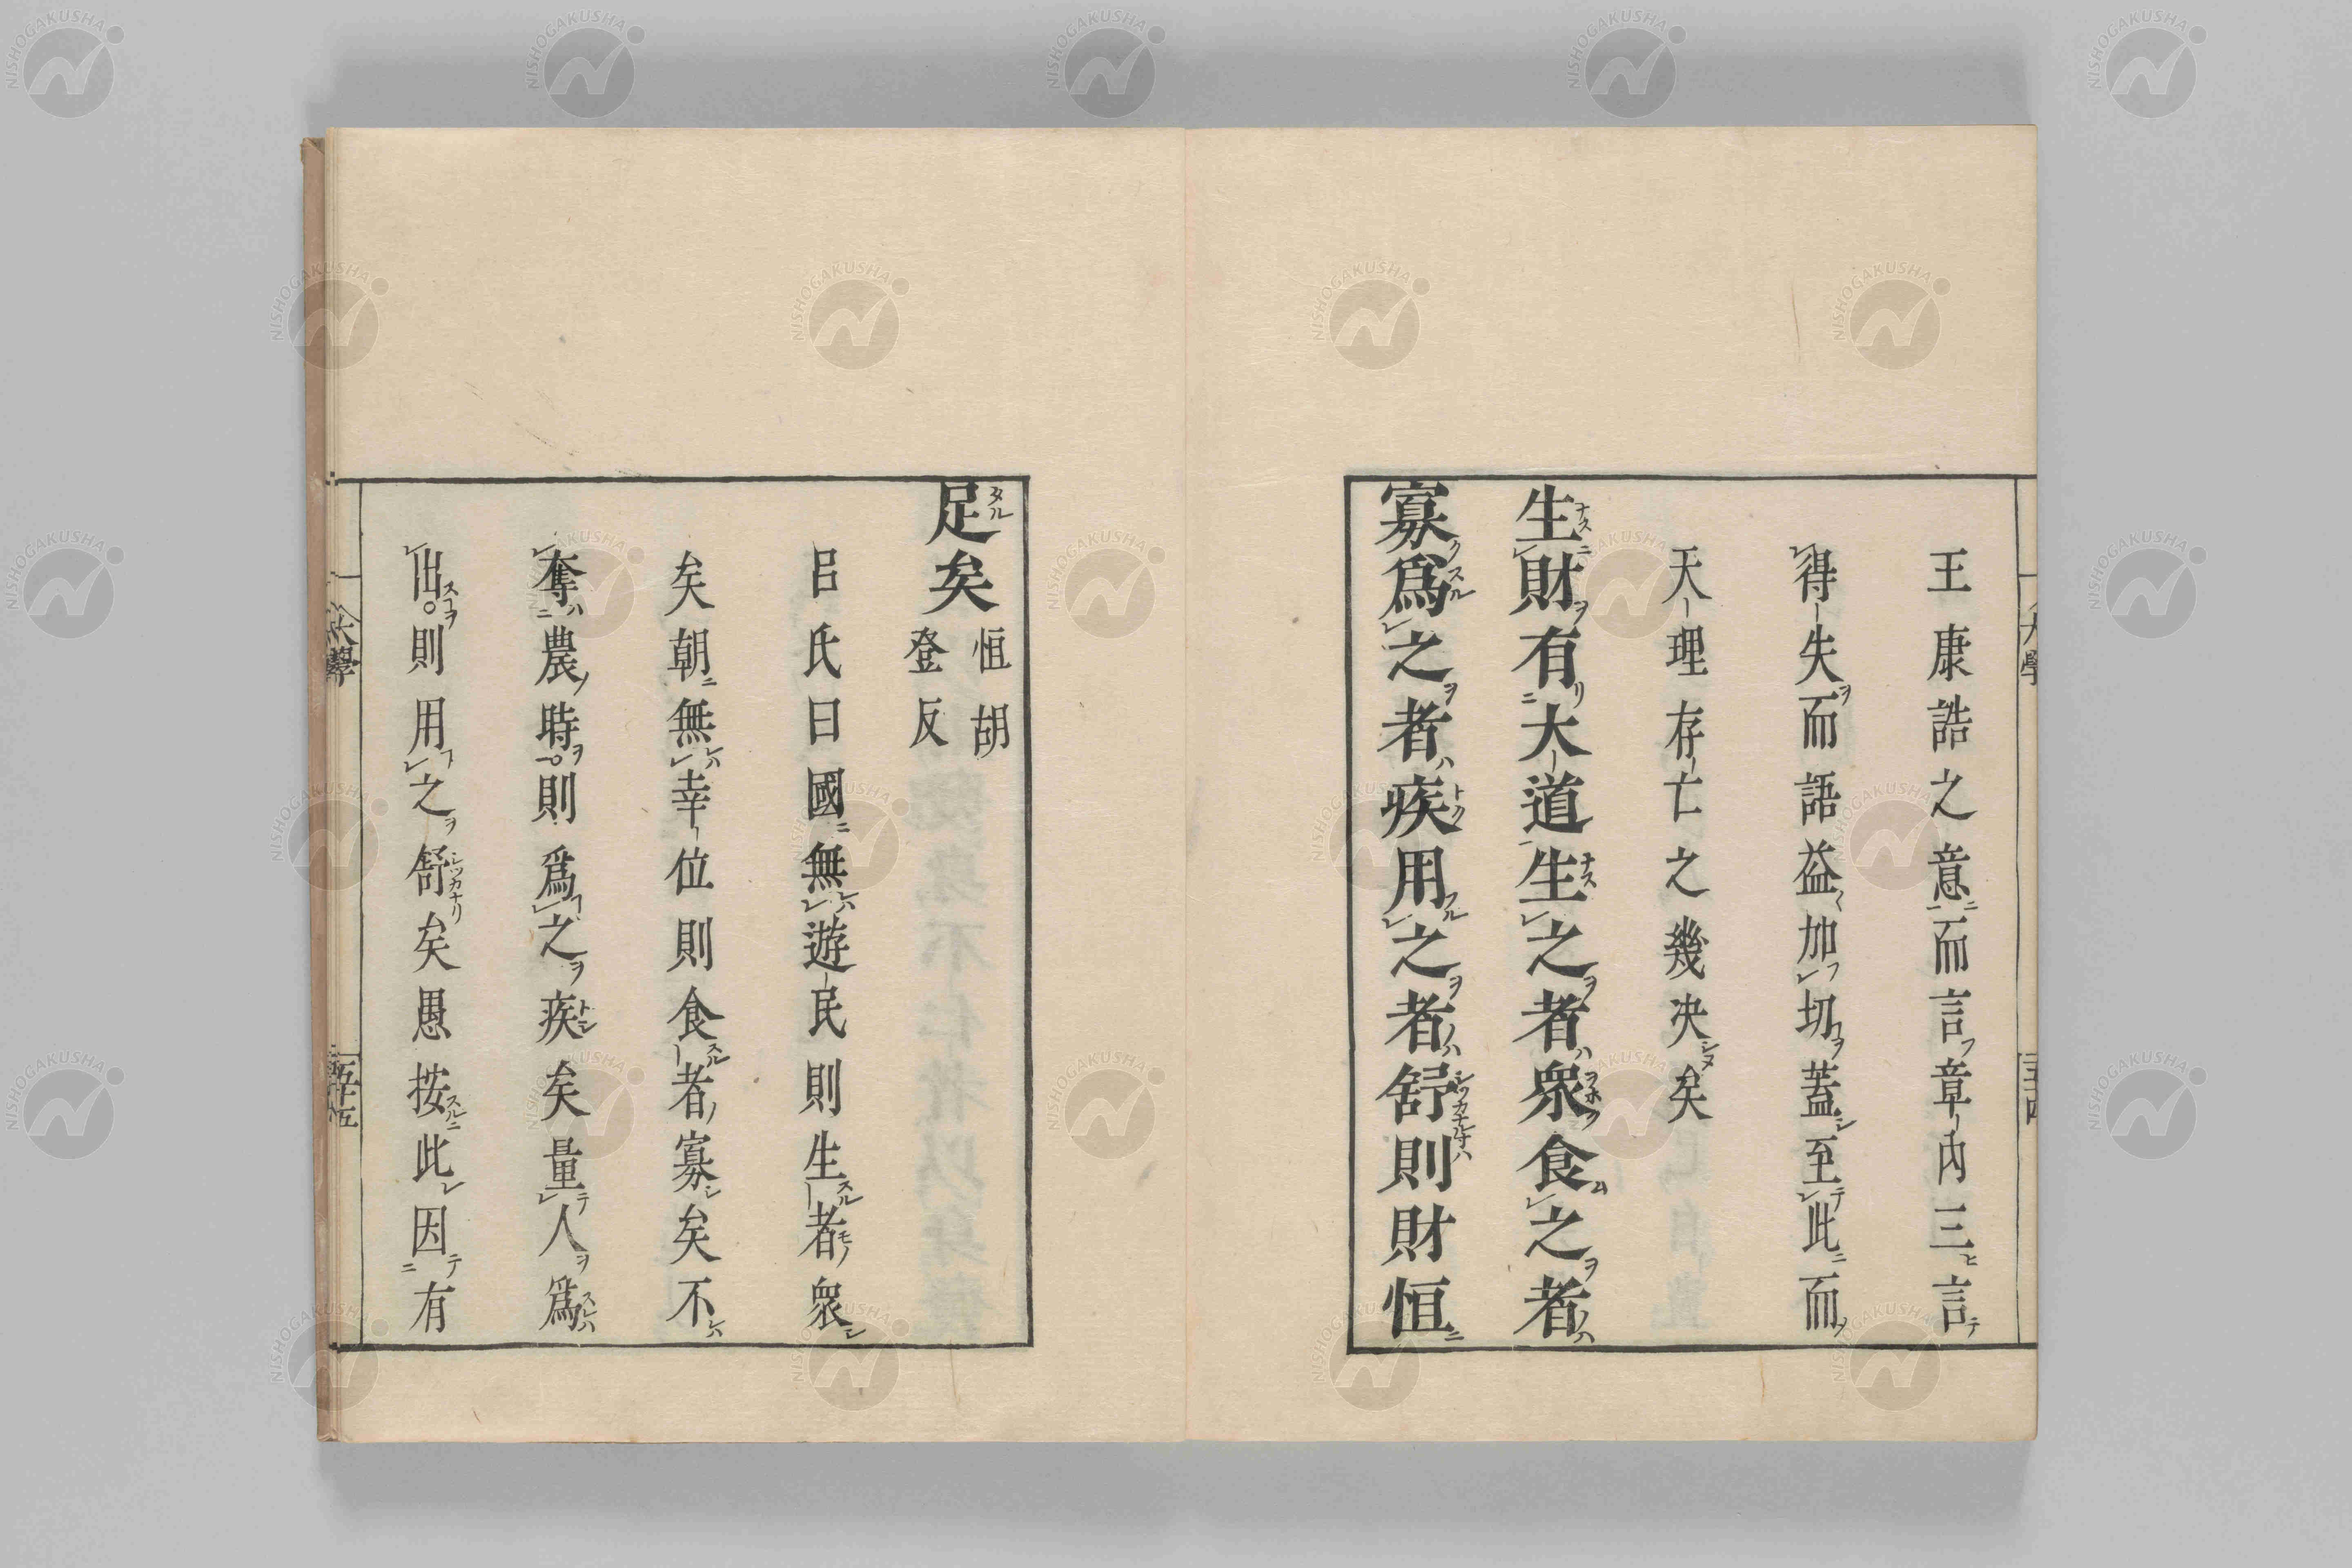 王康誥之意而言章內三言
得失而語益加切蓋至此而
天理存亡之幾決矣
生財有大道生之者衆食之者
寡爲之者疾用之者舒則財恒
足矣恒胡登反
呂氏曰國無遊民則生者衆
矣朝無幸位則食者寡矣不
奪農時則爲之疾矣量人爲
出則用之舒矣愚按此因有
大學
五十五
NISHOGAKUSHA